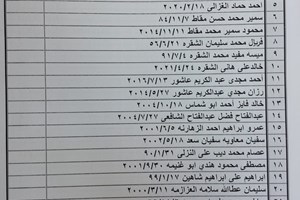 ٥ احمد حماد الغزالي ٢٠٢٠/٢/١٨
٦ سمير محمد حسن مقاط ٨٤/١١/٧
٧ محمود سمير محمد مقاط ٢٠١٤/١١/١١
٨ فريال محمد سليمان الشقره ٥٦/٦/٢١
٩ ميسه مفيد محمد الشقره ٩١/٧/٤
١٠ خالد علي هاني الشقره ٢٠٢١/٤/٢٤
١١ احمد مجدي عبد الكريم عاشور ٢٠١٦/٧/١٣
١٢ رزان مجدي عبد الكريم عاشور ٢٠١٤/٥/٢٧
١٣ خالد فايز أحمد ابو شماس ٢٠٠٤/١٠/١٨
١٤ عبدالفتاح فضل عبدالفتاح الشافعي ٢٠٠٤/٧/٢٧
١٥ عمرو ابراهيم احمد الزهارنه ٢٠٠١/٦/٥
١٦ سفيان معاويه سفيان سعد ٢٠٠٢/٥/١٨
١٧ عصام محمد ديب علي النزلي ٩٠/١/٣١
١٨ مصطفى محمود هندي ابو غنيمه ٢٠٠١/٩/٣٠
١٩ ابراهيم علي ابراهيم شاهين ٩٩/١/١٧
٢٠ سليمان عطالله سلامه العزازمه ٢٠٠٠/٣/١١